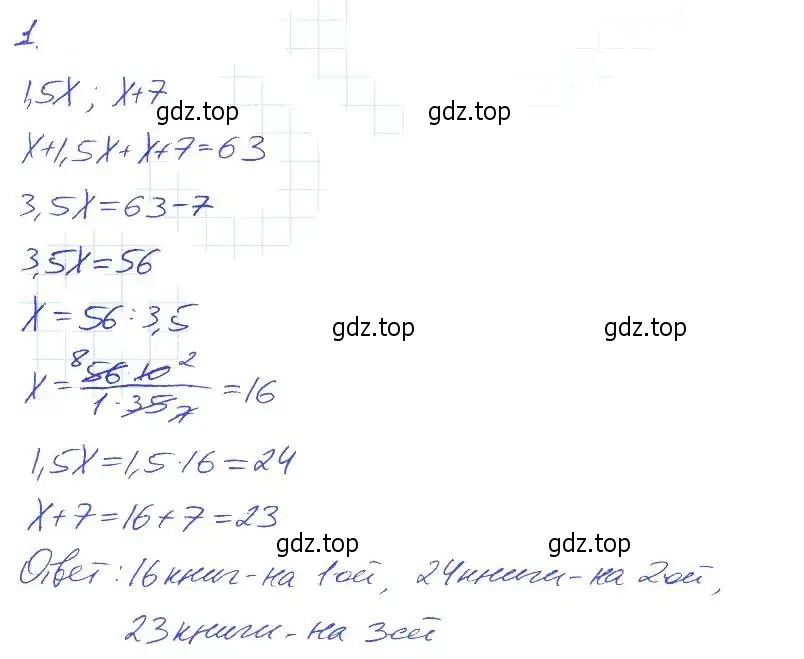 1.
1,5x; x+7
gdz.top gdz.top
x+1,5x+x+7=63
3,5x=63-7
3,5x=56
x=56:3,5
gdz.top gdz.top
x = 8 56·10 2 / 1·35 7 = 16
1,5x=1,5·16=24
x+7=16+7=23
gdz.top gdz.top
Ответ: 16 книг - на 1ой, 24 книги - на 2ой,
23 книги - на 3ей